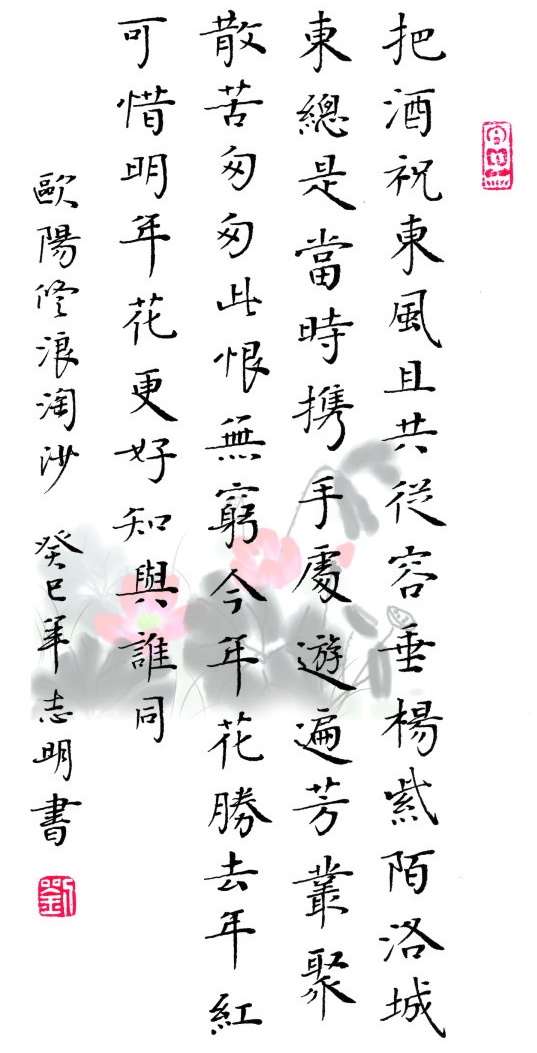 把酒祝東風且共從容垂楊紫陌洛城
東總是當時携手處遊遍芳叢聚
散苦匆匆此恨無窮今年花勝去年紅
可惜明年花更好知與誰同
歐陽修浪淘沙 癸巳年志明書
劉